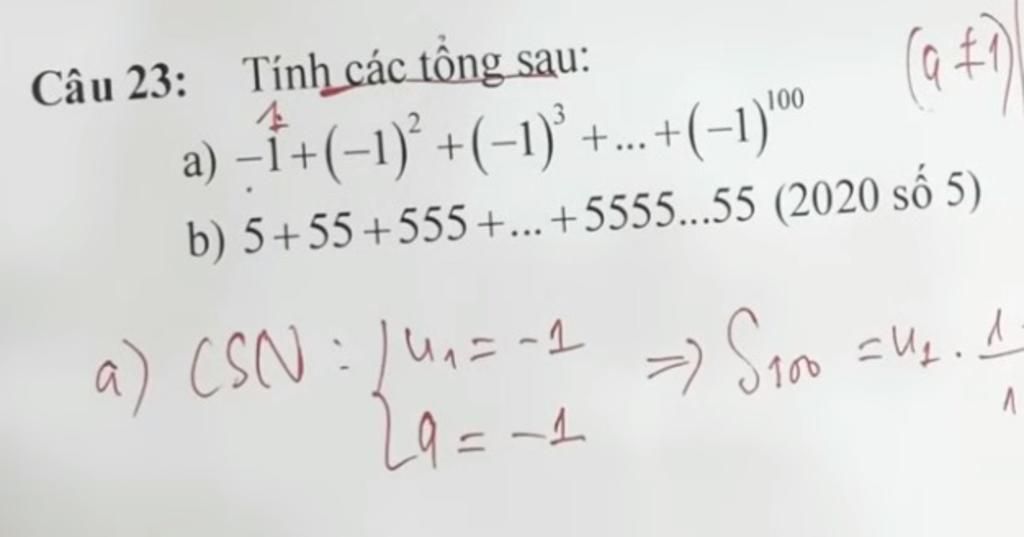 Câu 23: Tính các tổng sau: (q ≠ 1)
1
a) −1+(−1)²+(−1)³+...+(−1)¹⁰⁰
b) 5+55+555+...+5555...55 (2020 số 5)
a) CSN : { u₁ = -1 => S₁₀₀ = u₁ . 1
q = -1 1